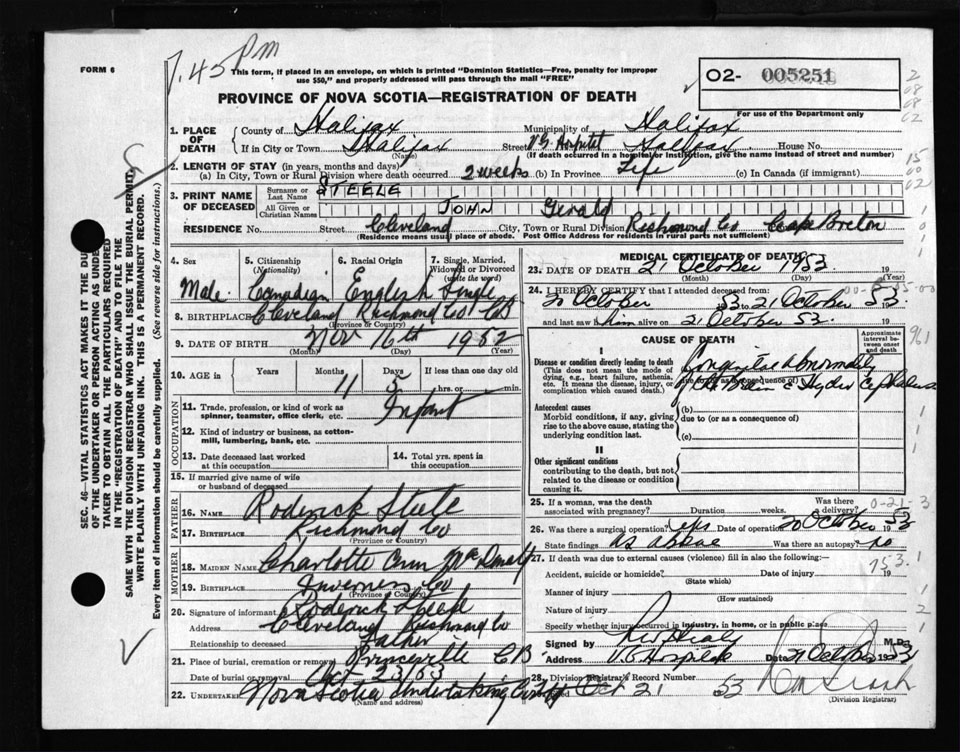 7.45 Pm
FORM 6
This form, if placed in an envelope, on which is printed "Dominion Statistics—Free, penalty for improper
use $50," and properly addressed will pass through the mail "FREE"
O2- 005251
For use of the Department only
PROVINCE OF NOVA SCOTIA—REGISTRATION OF DEATH
1. PLACE OF DEATH
County of Halifax Municipality of Halifax
If in City or Town Halifax Street V.G. Hospital Halifax House No.
(Name) (If death occurred in a hospital or institution, give the name instead of street and number)
2. LENGTH OF STAY (in years, months and days)
(a) In City, Town or Rural Division where death occurred 2 weeks (b) In Province Life (c) In Canada (if immigrant)
3. PRINT NAME OF DECEASED
Surname or Last Name STEELE
All Given or Christian Names JOHN Gerald
RESIDENCE No. Street Cleveland City, Town or Rural Division Richmond Co Cape Breton
(Residence means usual place of abode. Post Office Address for residents in rural parts not sufficient)
4. Sex Male
5. Citizenship (Nationality) Canadian
6. Racial Origin English
7. Single, Married, Widowed or Divorced (write the word) Single
8. BIRTHPLACE Cleveland Richmond Co CB
(Province or Country)
9. DATE OF BIRTH Nov 16th 1952
(Month) (Day) (Year)
10. AGE in Years Months 11 Days 5 If less than one day
hrs. or min.
OCCUPATION
11. Trade, profession or kind of work as
spinner, teamster, office clerk, etc. Infant
12. Kind of industry or business, as cotton-
mill, lumbering, bank, etc.
13. Date deceased last worked
at this occupation
14. Total yrs. spent in
this occupation
15. If married give name of wife
or husband of deceased
FATHER
16. NAME Roderick Steele
17. BIRTHPLACE Richmond Co
(Province or Country)
MOTHER
18. MAIDEN NAME Charlotte Ann
19. BIRTHPLACE Inverness Co
(Province or Country)
20. Signature of informant Roderick Steele
Address Cleveland Richmond Co
Relationship to deceased Father
21. Place of burial, cremation or removal Princeville CB
Date of burial or removal Oct 23/53
22. UNDERTAKER Nova Scotia Undertaking
(Name and address)
MEDICAL CERTIFICATE OF DEATH
23. DATE OF DEATH 21 October 1953 19
(Month) (Day) (Year)
24. I HEREBY CERTIFY that I attended deceased from:
20 October 53 to 21 October 53.
and last saw him alive on 21 October 53.
CAUSE OF DEATH
Approximate interval between onset and death
I
Disease or condition directly leading to death
(This does not mean the mode of
dying, e.g., heart failure, asthenia,
etc. It means the disease, injury, or
complication which caused death.)
Congenital Abnormality
due to (or as a consequence of)
Antecedent causes
Morbid conditions, if any, giving
rise to the above cause, stating the
underlying condition last.
(b)
due to (or as a consequence of)
(c)
II
Other significant conditions
contributing to the death, but not
related to the disease or condition
causing it.
25. If a woman, was the death
associated with pregnancy? Duration weeks. Was there a delivery?
26. Was there a surgical operation? yes Date of operation 20 October 1953
State findings as above Was there an autopsy? no
27. If death was due to external causes (violence) fill in also the following:—
Accident, suicide or homicide? Date of injury 19
(State which)
Manner of injury
(How sustained)
Nature of injury
Specify whether injury occurred in industry, in home, or in public place
Signed by M.D.
Address V.G. Hospital Date 21 October 1953
28. Division Registrar's Record Number
Oct 21 53
(Division Registrar)
SEC. 46—VITAL STATISTICS ACT MAKES IT THE DUTY
OF THE UNDERTAKER OR PERSON ACTING AS UNDER-
TAKER TO OBTAIN ALL THE PARTICULARS REQUIRED
IN THE "REGISTRATION OF DEATH" AND TO FILE THE
SAME WITH THE DIVISION REGISTRAR WHO SHALL ISSUE THE BURIAL PERMIT.
WRITE PLAINLY WITH UNFADING INK. THIS IS A PERMANENT RECORD.
Every item of information should be carefully supplied. (See reverse side for instructions.)